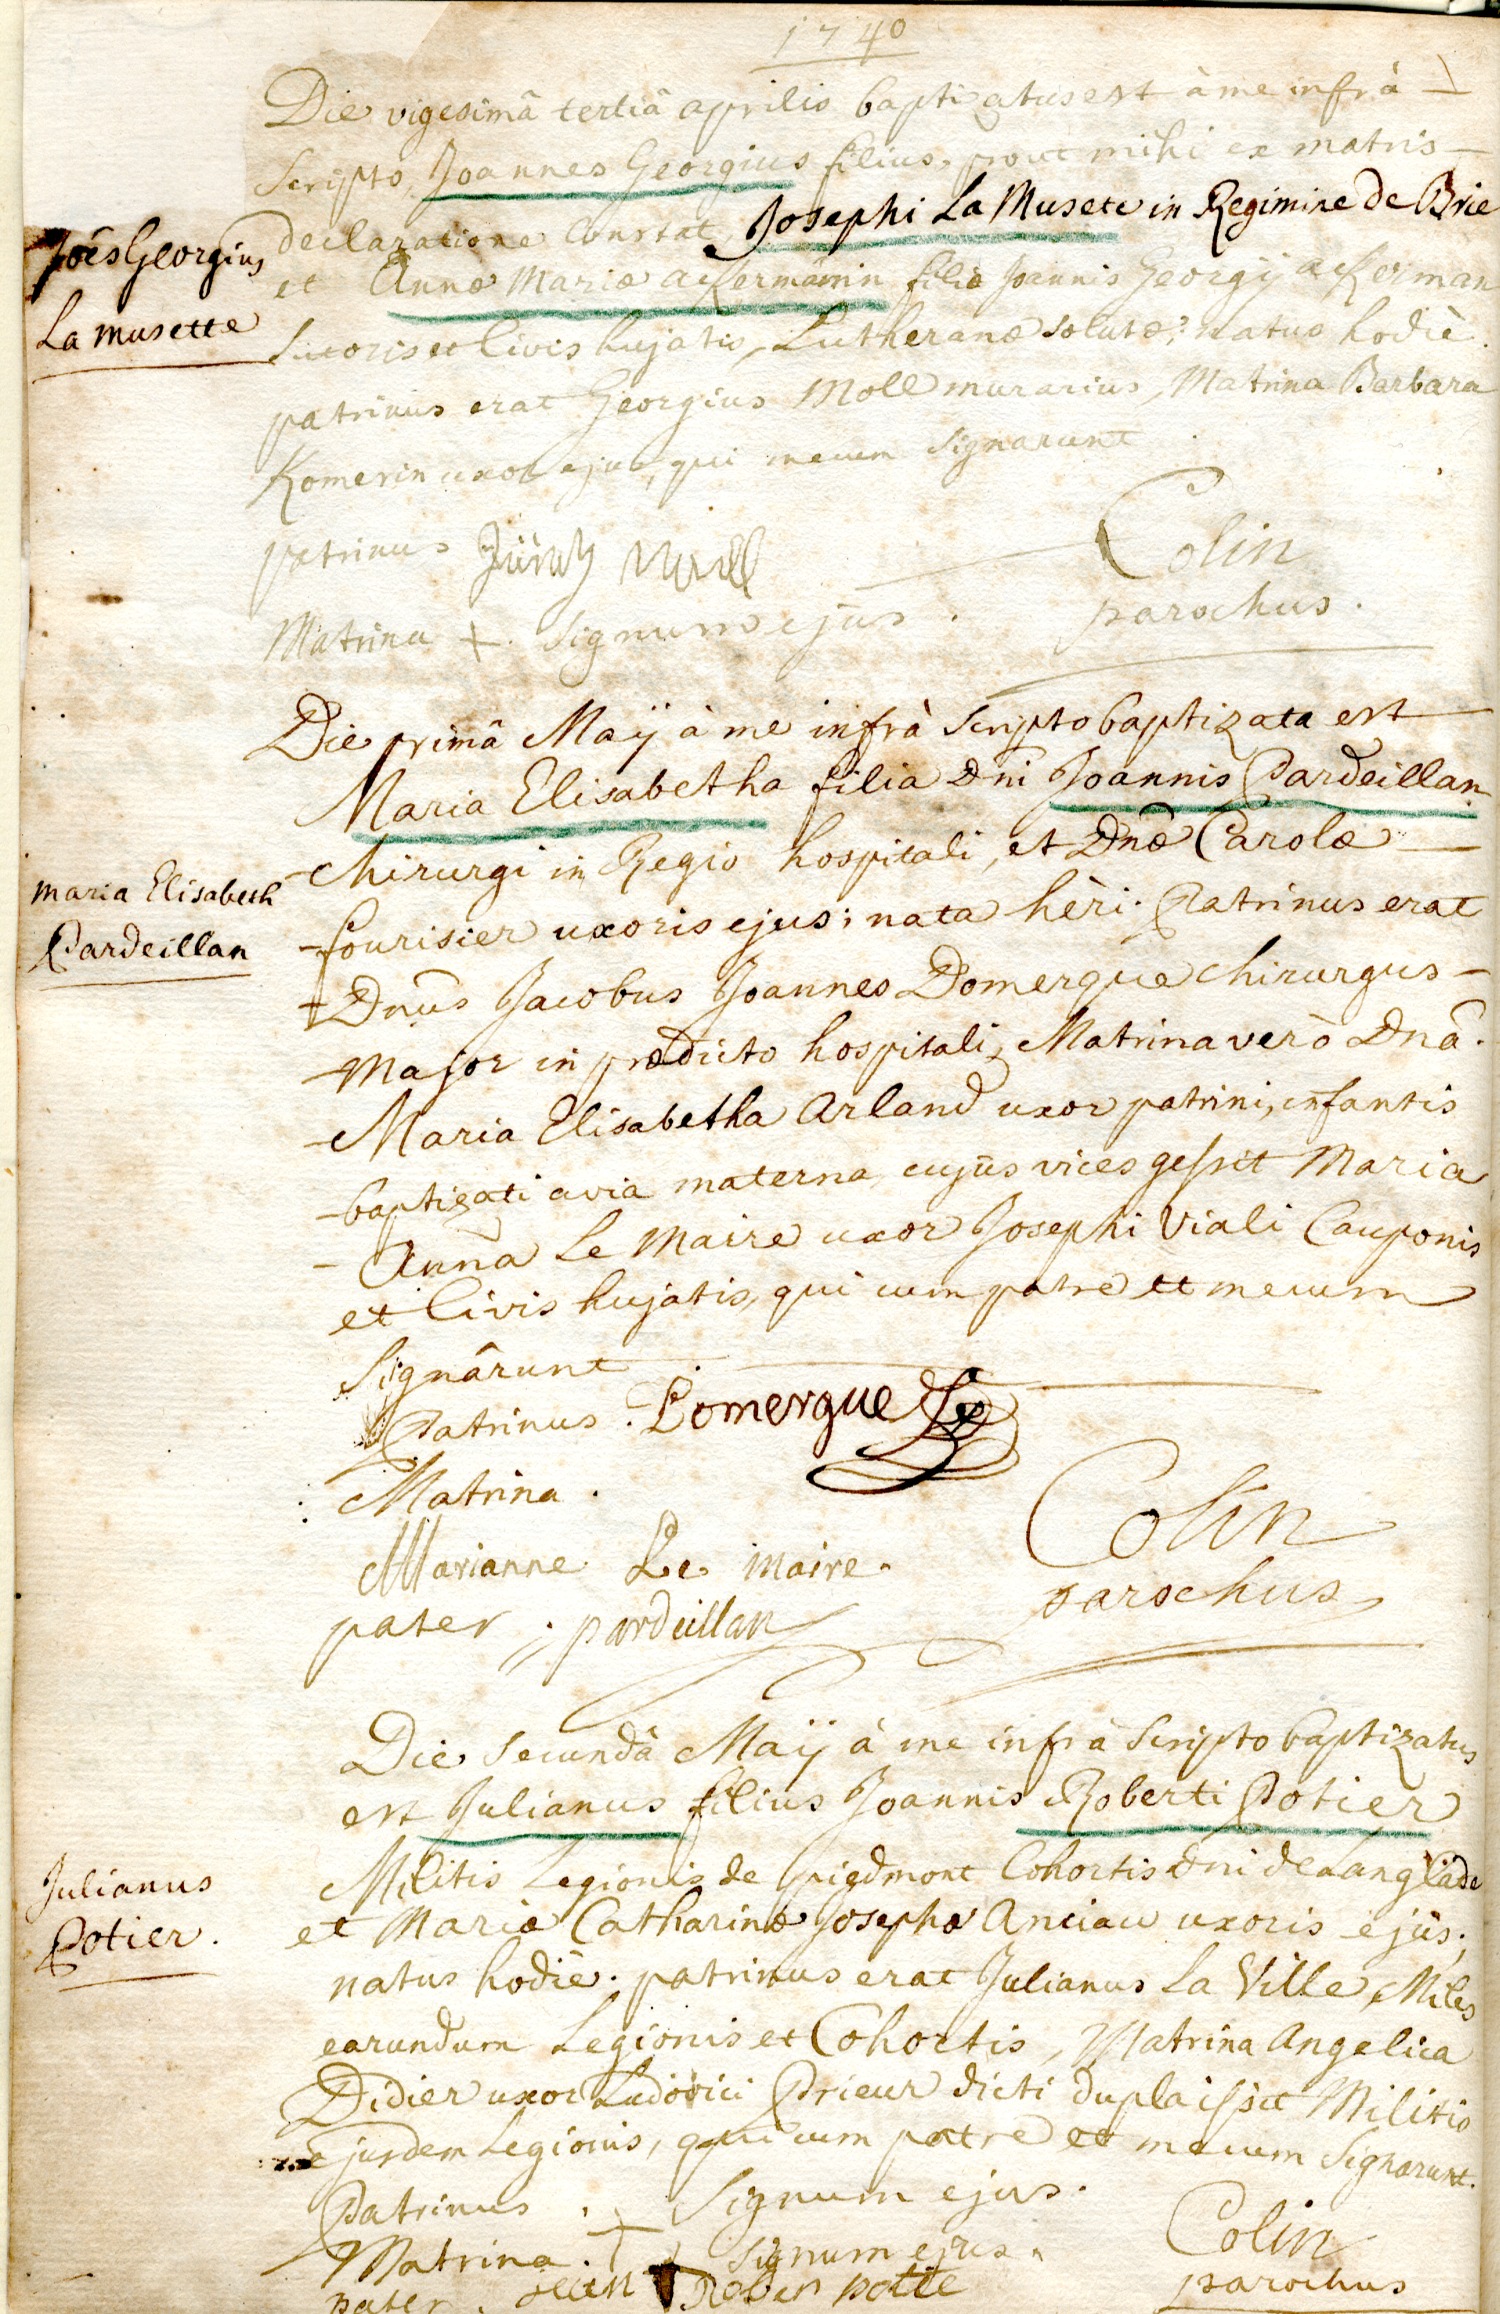 1740
Die vigesimâ tertiâ aprilis baptizatus est à me infrà
scripto, Joannes Georgius filius, prout mihi ex matris
Joês Georgius
La musette
declaratione Constat, Josephi La Musete in Regimine de Brie
et Annæ Mariæ ackermännin filiæ Joannis Georgij ackerman
sutoris et Civis hujatis, Lutheranæ solutæ; natus hodiè.
patrinus erat Georgius Moll murarius, Matrina Barbara
Komerin uxor ejus, qui mecum signarunt
patrinus
Colin
parochus.
Matrina + signum ejus.
Die primâ Maij à me infrà scripto baptizata est
Maria Elisabetha filia Dni Joannis Pardeillan
maria Elisabeth
Pardeillan
chirurgi in Regio hospitali, et Dnæ Carolæ
fourisier uxoris ejus; nata hèri. Patrinus erat
Dnus Jacobus Joannes Domergue chirurgus
major in prædicto hospitali, Matrina verò Dnâ.
Maria Elisabetha Arland uxor patrini, infantis
baptizati avia materna, cujus vices gessit Maria
Anna Le Maire uxor Josephi Viali Cauponis
et Civis hujatis, qui cum patre et mecum
signârunt
Patrinus. Domergue
Matrina.
Marianne Le maire.
Colin
parochus
pater; pardeillan
Die secundâ Maij à me infrà scripto baptizatus
est Julianus filius Joannis Roberti Potier
Julianus
Potier.
Militis Legionis de piedmont Cohortis dni de Langlade
et Mariæ Catharinæ Josephæ Anciau uxoris ejus;
natus hodiè. patrinus erat Julianus La Ville, Miles
earundum Legionis et Cohortis, Matrina Angelica
Didier uxor Ludovici Prieur dicti duplaissit Militis
ejusdem Legionis, qui cum patre et mecum signarunt.
Patrinus. + signum ejus.
Matrina. + signum ejus.
Colin
parochus
pater. Rober potie